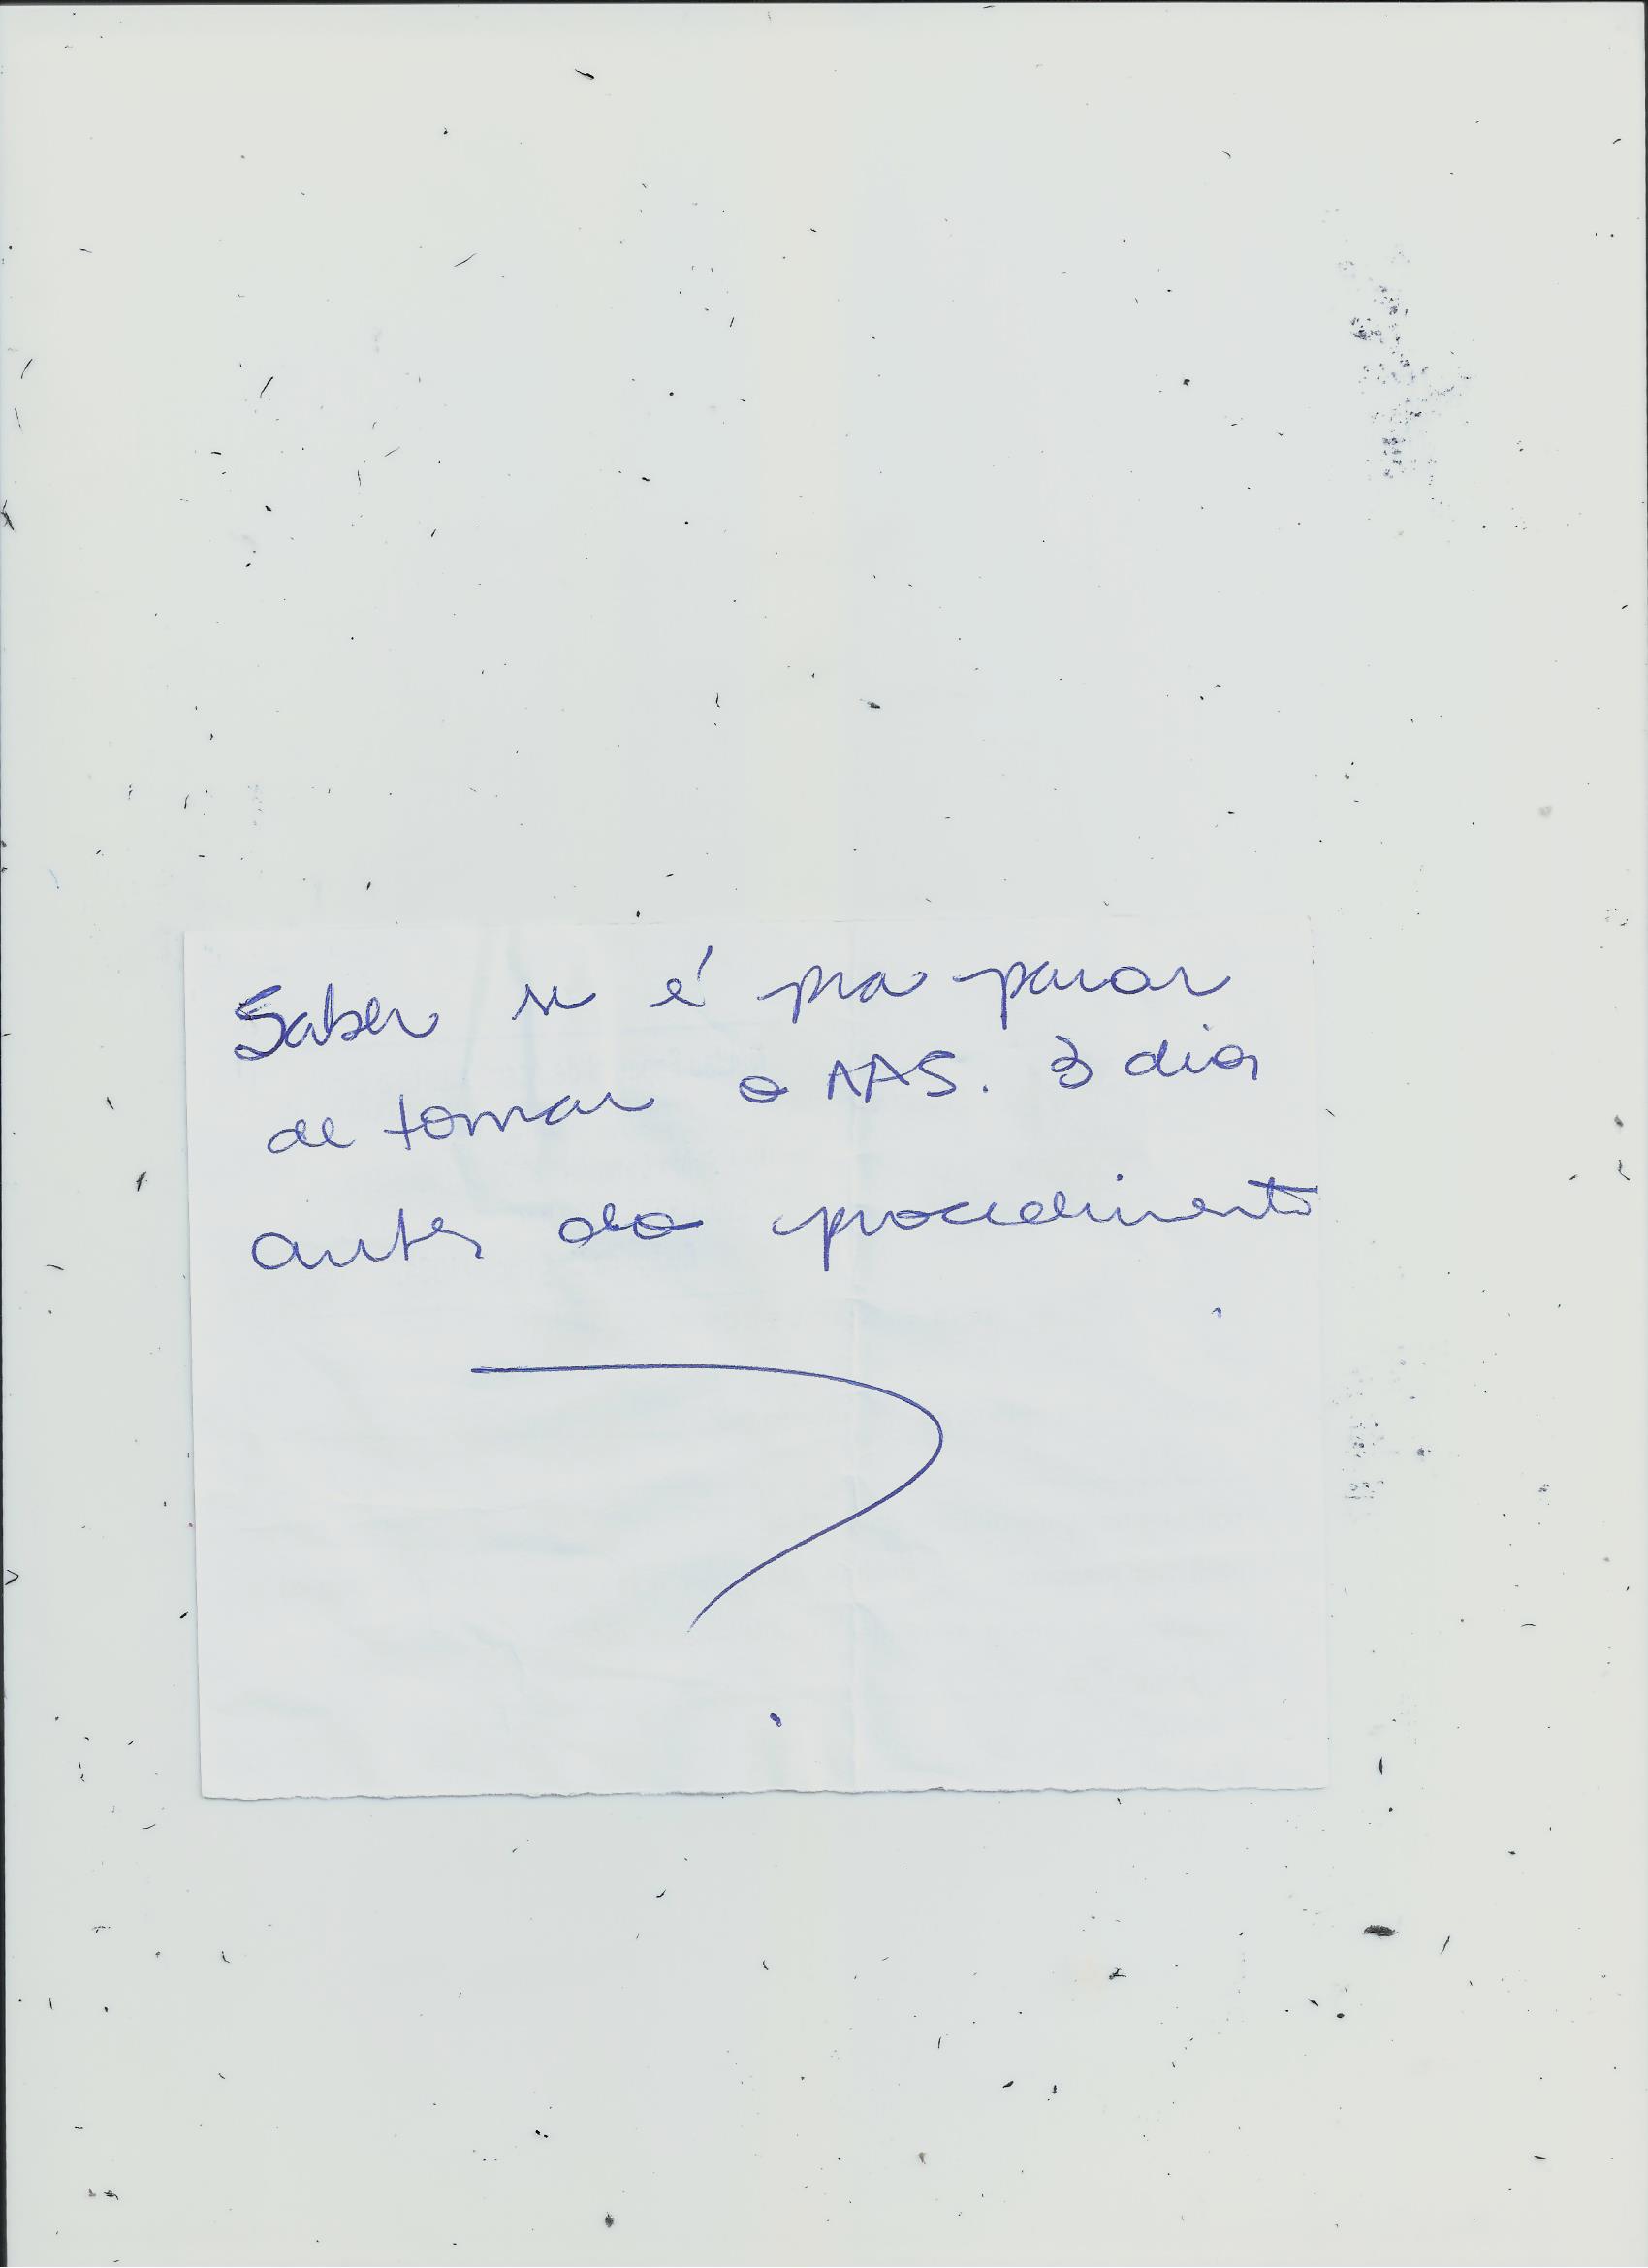 Saber se é pra parar
de tomar o AAS. 3 dias
antes do procedimento
?